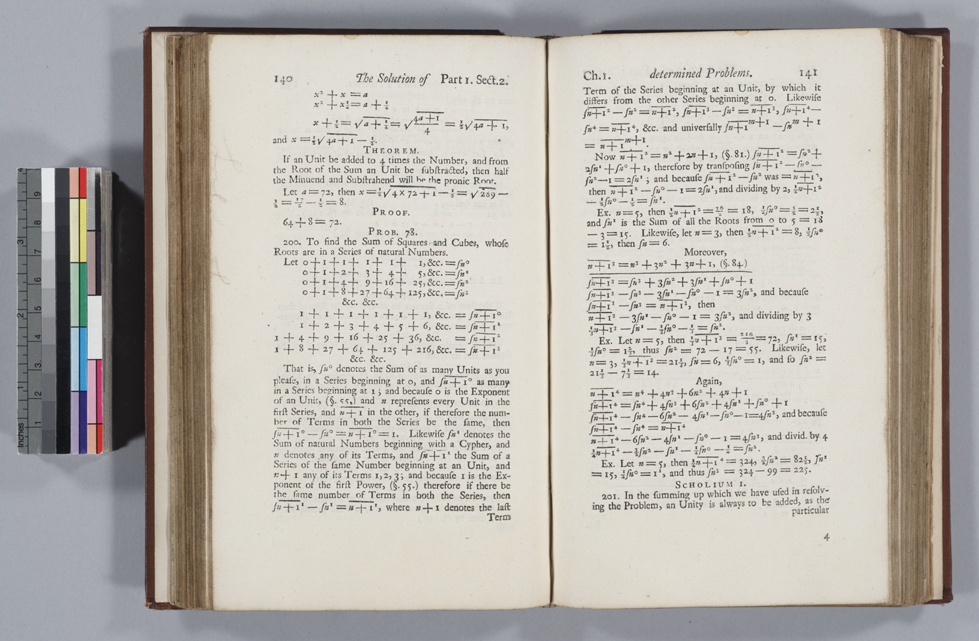 140 The Solution of Part 1. Sect. 2.
x² + x = a
x² + x¼ = a + ¼
x + ½ = √a + ¼ = √4a+1/4 = ½√4a + 1,
and x = ½√4a+1 − ½.
THEOREM.
If an Unit be added to 4 times the Number, and from
the Root of the Sum an Unit be ſubſtracted, then half
the Minuend and Subſtrahend will be the pronic Root.
Let a = 72, then x = ½√4 × 72 + 1 − ½ = √289 −
½ = 17/2 − ½ = 8.
PROOF.
64 + 8 = 72.
PROB. 78.
200. To find the Sum of Squares and Cubes, whoſe
Roots are in a Series of natural Numbers.
Let 0 + 1 + 1 + 1 + 1 + 1, &c. = ſn⁰
0 + 1 + 2 + 3 + 4 + 5, &c. = ſn¹
0 + 1 + 4 + 9 + 16 + 25, &c. = ſn²
0 + 1 + 8 + 27 + 64 + 125, &c. = ſn³
&c. &c.
1 + 1 + 1 + 1 + 1 + 1, &c. = ſn+1⁰
1 + 2 + 3 + 4 + 5 + 6, &c. = ſn+1¹
1 + 4 + 9 + 16 + 25 + 36, &c. = ſn+1²
1 + 8 + 27 + 64 + 125 + 216, &c. = ſn+1³
&c. &c.
That is, ſn⁰ denotes the Sum of as many Units as you
pleaſe, in a Series beginning at 0, and ſn+1⁰ as many
in a Series beginning at 1; and becauſe 0 is the Exponent
of an Unit, (§. 55,) and n repreſents every Unit in the
firſt Series, and n+1 in the other, if therefore the num-
ber of Terms in both the Series be the ſame, then
ſn+1⁰ − ſn⁰ = n+1⁰ = 1. Likewiſe ſn¹ denotes the
Sum of natural Numbers beginning with a Cypher, and
n denotes any of its Terms, and ſn+1¹ the Sum of a
Series of the ſame Number beginning at an Unit, and
n+1 any of its Terms 1, 2, 3; and becauſe 1 is the Ex-
ponent of the firſt Power, (§. 55.) therefore if there be
the ſame number of Terms in both the Series, then
ſn+1¹ − ſn¹ = n+1¹, where n+1 denotes the laſt
Term
Ch. 1. determined Problems. 141
Term of the Series beginning at an Unit, by which it
differs from the other Series beginning at 0. Likewiſe
ſn+1² − ſn² = n+1², ſn+1³ − ſn³ = n+1³, ſn+1⁴ −
ſn⁴ = n+1⁴, &c. and univerſally ſn+1 m+1 − ſn m+1
= n+1 m+1
Now n+1² = n² + 2n + 1, (§. 81.) ſn+1² = ſn² +
2ſn¹ + ſn⁰ + 1, therefore by tranſpoſing ſn+1² − ſn² −
ſn⁰ − 1 = 2ſn¹; and becauſe ſn+1² − ſn² was = n+1²,
then n+1² − ſn⁰ − 1 = 2ſn¹, and dividing by 2, ½n+1²
− ½ſn⁰ − ½ = ſn¹.
Ex. n = 5, then ½n+1² = 36/2 = 18, ½ſn⁰ = 5/2 = 2½,
and ſn¹ is the Sum of all the Roots from 0 to 5 = 18
− 3 = 15. Likewiſe, let n = 3, then ½n+1² = 8, ½ſn⁰
= 1½, then ſn = 6.
Moreover,
n+1³ = n³ + 3n² + 3n + 1, (§. 84.)
ſn+1³ = ſn³ + 3ſn² + 3ſn¹ + ſn⁰ + 1
ſn+1³ − ſn³ − 3ſn¹ − ſn⁰ − 1 = 3ſn², and becauſe
ſn+1³ − ſn³ = n+1³, then
n+1³ − 3ſn¹ − ſn⁰ − 1 = 3ſn², and dividing by 3
⅓n+1³ − ſn¹ − ⅓ſn⁰ − ⅓ = ſn².
Ex. Let n = 5, then ⅓n+1³ = 216/3 = 72, ſn¹ = 15,
⅓ſn⁰ = 1⅔, thus ſn² = 72 − 17 = 55. Likewiſe, let
n = 3, ⅓n+1³ = 21⅓, ſn = 6, ⅓ſn⁰ = 1, and ſo ſn² =
21⅓ − 7⅓ = 14.
Again,
n+1⁴ = n⁴ + 4n³ + 6n² + 4n + 1
ſn+1⁴ = ſn⁴ + 4ſn³ + 6ſn² + 4ſn¹ + ſn⁰ + 1
ſn+1⁴ − ſn⁴ − 6ſn² − 4ſn¹ − ſn⁰ − 1 = 4ſn³, and becauſe
ſn+1⁴ − ſn⁴ = n+1⁴
n+1⁴ − 6ſn² − 4ſn¹ − ſn⁰ − 1 = 4ſn³, and divid. by 4
¼n+1⁴ − 3/2ſn² − ſn¹ − ¼ſn⁰ − ¼ = ſn³.
Ex. Let n = 5, then ¼n+1⁴ = 324, 3/2ſn² = 82½, ſn¹
= 15, ¼ſn⁰ = 1¼, and thus ſn³ = 324 − 99 = 225.
SCHOLIUM 1.
201. In the ſumming up which we have uſed in reſolv-
ing the Problem, an Unity is always to be added, as the
particular
4